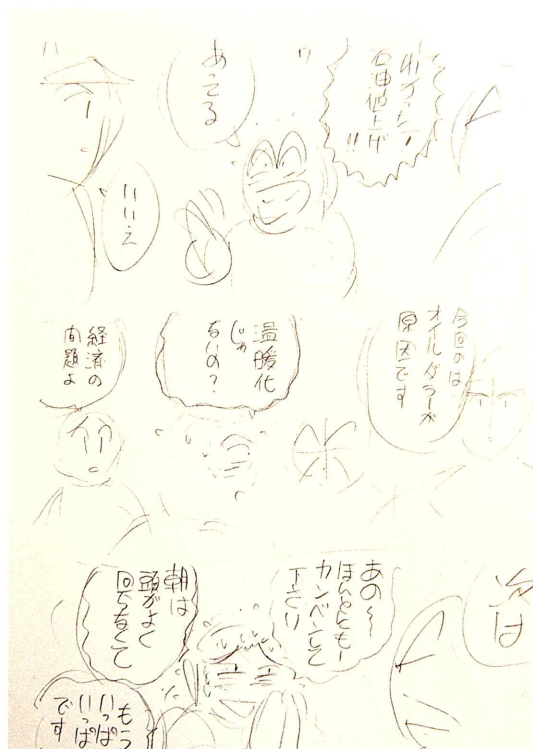 石油値上げ!!
あってる
いいえ
今回のは
オイルダラーが
原因です
温暖化
じゃ
ないの?
経済の
問題よ
次は
あの〜
ほんともー
カンベンして
下さい
朝は
頭がよく
回らなくて
もう
いっぱい
いっぱい
です